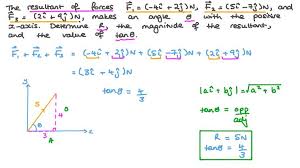 The resultant of forces F₁ = (-4i + 2j) N, F₂ = (5i - 7j) N, and
F₃ = (2i + 9j) N, makes an angle θ with the positive
x-axis. Determine R, the magnitude of the resultant,
and the value of tanθ.
F₁ + F₂ + F₃ = (-4i + 2j) N + (5i - 7j) N + (2i + 9j) N
= (3i + 4j) N
|ai + bj| = √a² + b²
tanθ = 4/3
tanθ = opp/adj
y
5
4
θ
3
x
R = 5N
tanθ = 4/3